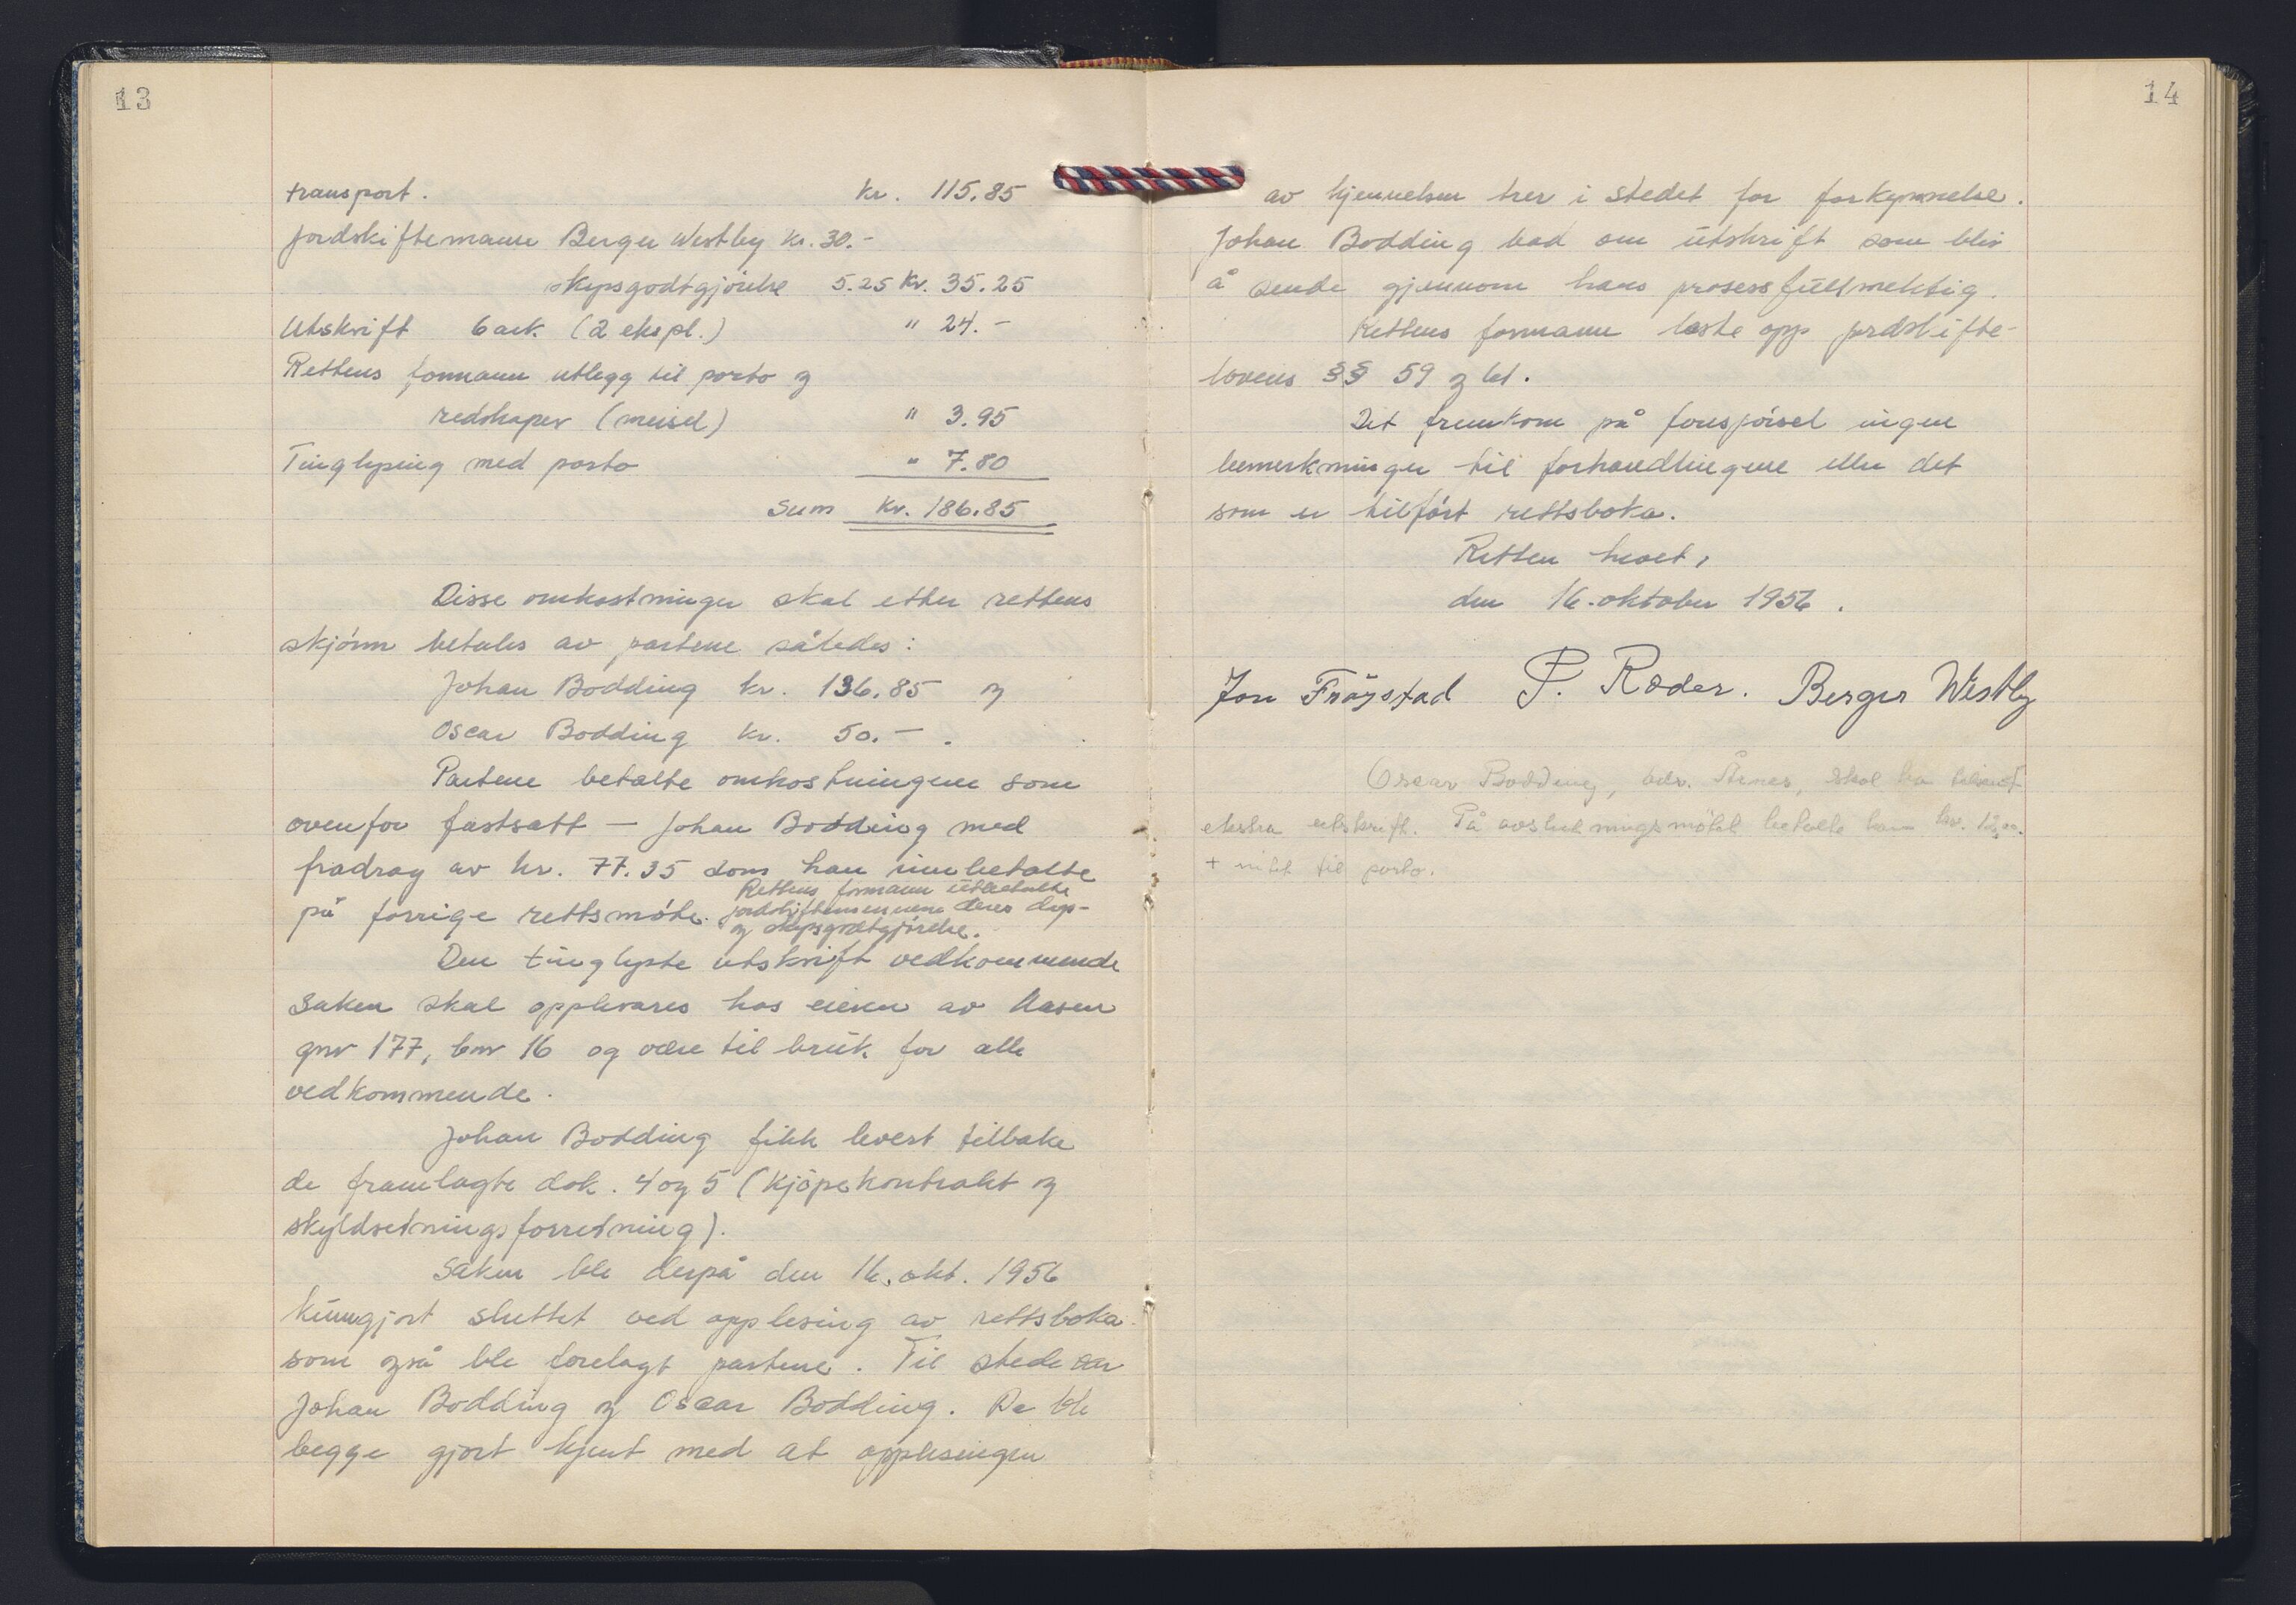 13
transport. Kr. 115.85
Jordskiftemann Berger Westby Kr. 30.-
skyssgodtgjörelse 5.25 Kr. 35.25
Utskrift 6 ark (2 ekspl.) " 24.-
Rettens formann utlegg til porto og
redskaper (meisel) " 3.95
Tinglysing med porto " 7.80
Sum Kr. 186.85
Disse omkostninger skal etter rettens
skjönn betales av partene således:
Johan Bodding kr. 136.85 og
Oscar Bodding kr. 50.- .
Partene betalte omkostningene som
ovenfor fastsatt - Johan Bodding med
fradrag av kr. 77.35 som han innbetalte
på forrige rettsmöte. Rettens formann utbetalte
jordskiftemennene deres dag-
og skyssgodtgjörelse.
Den tinglyste utskrift vedkommende
saken skal oppbevares hos eieren av Aasen
gnr 177, bnr 16 og være til bruk for alle
vedkommende.
Johan Bodding fikk levert tilbake
de framlagte dok. 4 og 5 (Kjöpekontrakt og
skyldsetningsforretning).
Saken ble derpå den 16. okt. 1956
kunngjort sluttet ved opplesing av rettsboka
som også ble forelagt partene. Til stede var
Johan Bodding og Oscar Bodding. De ble
begge gjort kjent med at opplesingen
14
av kjennelsen trer i stedet for forkynnelse.
Johan Bodding bad om utskrift som blir
å sende gjennom hans prosessfullmektig.
Rettens formann leste opp jordskifte-
lovens §§ 59 og 61.
Det fremkom på forespörsel ingen
bemerkninger til forhandlingene eller det
som er tilfört rettsboka.
Retten hevet,
den 16. oktober 1956.
Jon Fröystad P. Röder. Berger Westby
Oscar Bodding, adr. Årnes, skal ha tilsendt
ekstra utskrift. På avslutningsmötet betalte han kr. 12,00.
til porto.